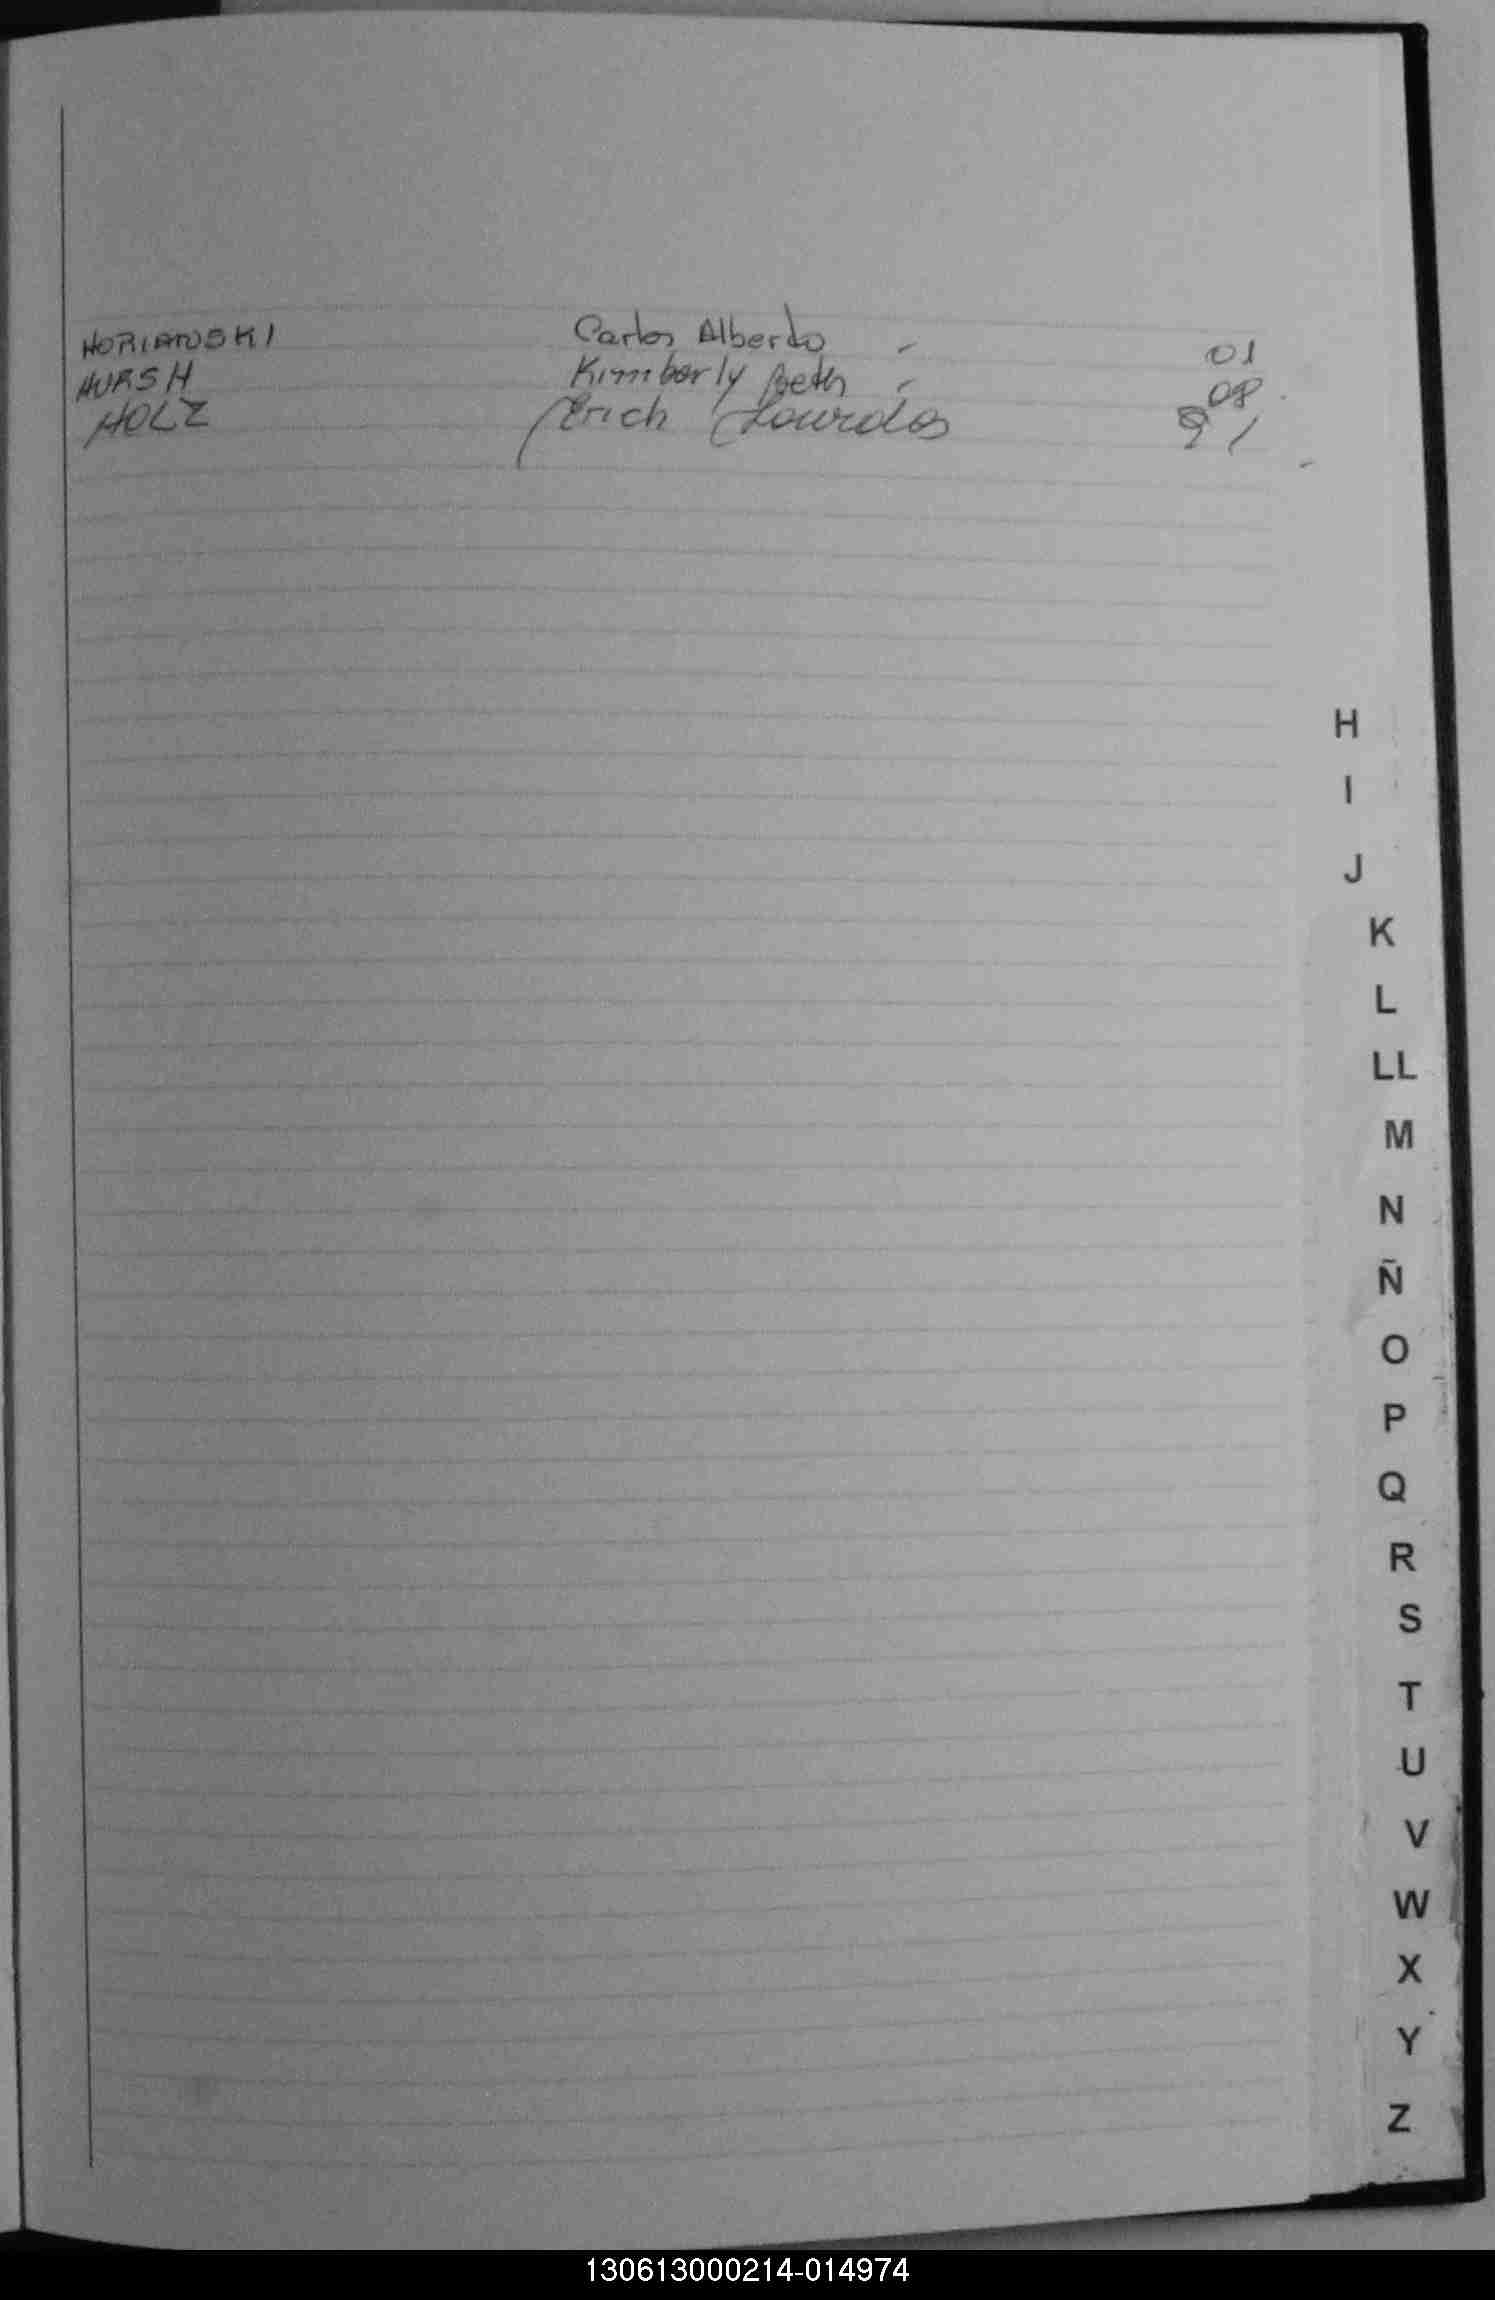 HORIANSKI Carlos Alberto - 01
HURSH Kimberly Beth - 08
HOLZ Erich Lourdes 91
H
I
J
K
L
LL
M
N
Ñ
O
P
Q
R
S
T
U
V
W
X
Y
Z
130613000214-014974